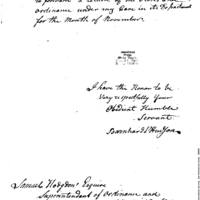 to forward a return of the Stores and
Ordinance under my Care in its Department
for the Month of November
I have the Honor to be
Very respectfully Your
Obedient Humble
Servant
Samuel Hodgdon Esquire
Superintendant of Ordinance and